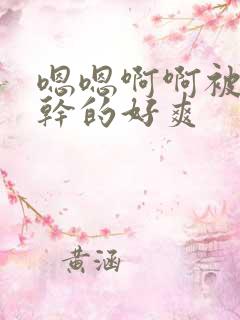 嗯嗯啊啊被
幹的好爽
黄涵